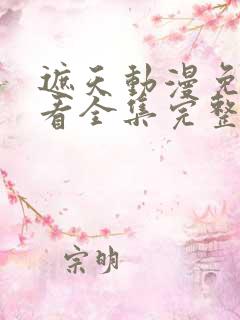 遮天動漫免
看全集完整
宗明